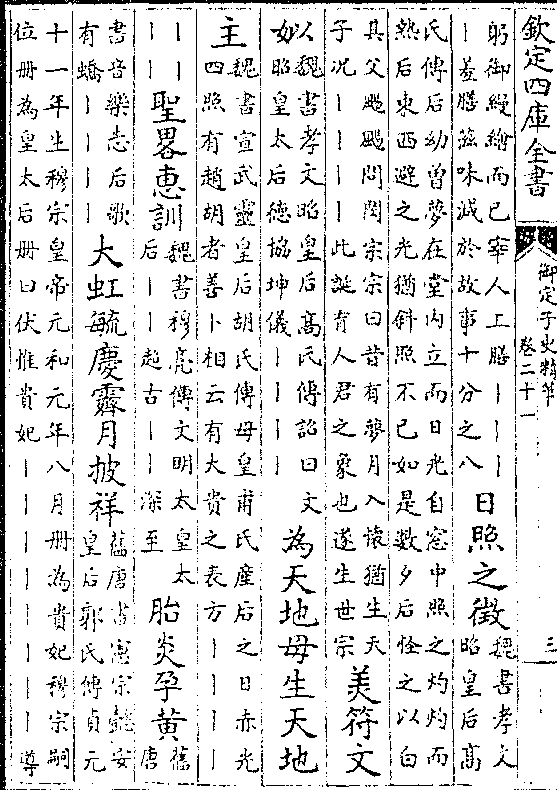 欽定四庫全書
御定子史精華
卷二十一
三
躬御縵繒而已宰人上膳｜｜｜
｜羞膳滋味減於故事十分之八
日照之徵
魏書孝文
昭皇后高
氏傳后幼曾夢在堂内立而日光自窓中照之灼灼而
熱后東西避之光猶斜照不已如是數夕后怪之以白
其父颺颺問閔宗宗曰昔有夢月入懐猶生天
子况｜｜｜｜此誕育人君之象也遂生世宗
美符文
姒
魏書孝文昭皇后高氏傳詔曰文
昭皇太后德協坤儀｜｜｜｜
為天地母生天地
主
魏書宣武靈皇后胡氏傳母皇甫氏産后之日赤光
四照有趙胡者善卜相云有大貴之表方｜｜｜
｜｜
｜｜
聖畧恵訓
魏書穆亮傳文明太皇太
后｜｜超古｜｜深至
胎炎孕黄
舊
唐
書音樂志后歌
有蟜｜｜｜｜
大虹毓慶霱月披祥
舊唐書憲宗懿安
皇后郭氏傳貞元
十一年生穆宗皇帝元和元年八月册為貴妃穆宗嗣
位册為皇太后册曰伏惟貴妃｜｜｜｜｜｜｜｜導